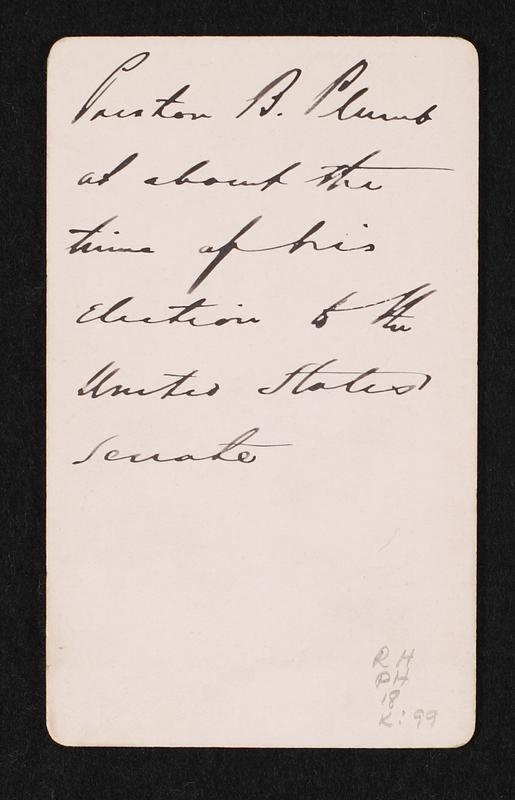 Preston B. Plumb
at about the
time of his
Election to the
United States
Senate
RH
PH
18
K:99